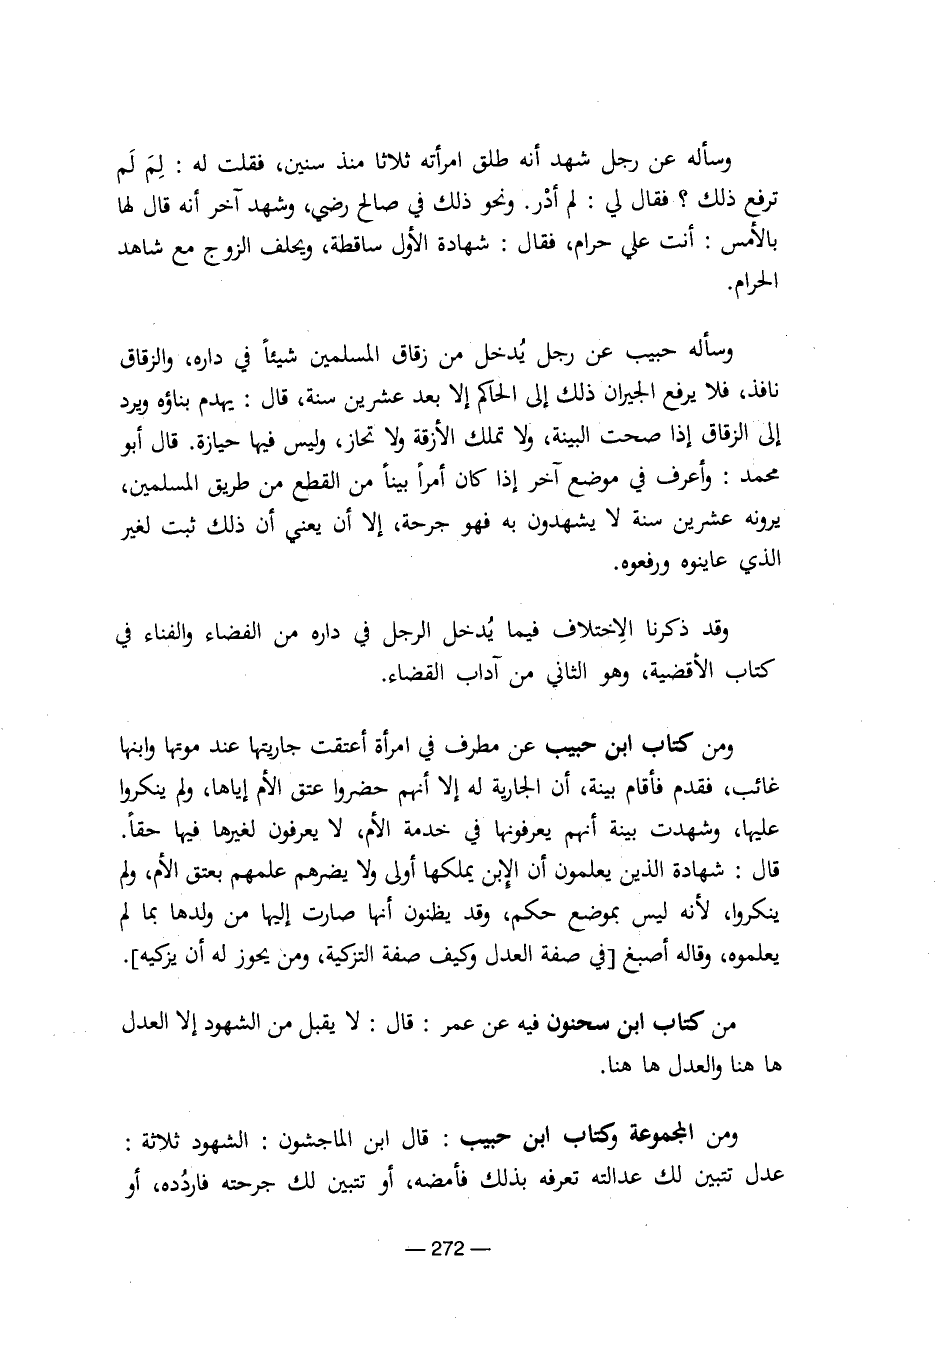 وسأله عن رجل شهد أنه طلق امرأته ثلاثا منذ سنين، فقلت له : لِمَ لَم
ترفع ذلك ؟ فقال لي : لم أدْر. ونحو ذلك في صالح رضي، وشهد آخر أنه قال لها
بالأمس : أنت علي حرام، فقال : شهادة الأول ساقطة، ويحلف الزوج مع شاهد
الحرام.
وسأله حبيب عن رجل يُدخل من زقاق المسلمين شيئاً في داره، والزقاق
نافذ، فلا يرفع الجيران ذلك إلى الحاكم إلا بعد عشرين سنة، قال : يهدم بناؤه ويرد
إلى الزقاق إذا صحت البينة، ولا تملك الأزقة ولا تحاز، وليس فيها حيازة. قال أبو
محمد : وأعرف في موضع آخر إذا كان أمراً بيناً من القطع من طريق المسلمين،
يرونه عشرين سنة لا يشهدون به فهو جرحة، إلا أن يعني أن ذلك ثبت لغير
الذي عاينوه ورفعوه.
وقد ذكرنا الإختلاف فيما يُدخل الرجل في داره من الفضاء والفناء في
كتاب الأقضية، وهو الثاني من آداب القضاء.
ومن كتاب ابن حبيب عن مطرف في امرأة أعتقت جاريتها عند موتها وابنها
غائب، فقدم فأقام بينة، أن الجارية له إلا أنهم حضروا عتق الأم إياها، ولم ينكروا
عليها، وشهدت بينة أنهم يعرفونها في خدمة الأم، لا يعرفون لغيرها فيها حقاً.
قال : شهادة الذين يعلمون أن الإبن يملكها أولى ولا يضرهم علمهم بعتق الأم، ولم
ينكروا، لأنه ليس بموضع حكم، وقد يظنون أنها صارت إليها من ولدها بما لم
يعلموه، وقاله أصبغ [في صفة العدل وكيف صفة التزكية، ومن يحوز له أن يزكيه].
من كتاب ابن سحنون فيه عن عمر : قال : لا يقبل من الشهود إلا العدل
ها هنا والعدل ها هنا.
ومن المجموعة وكتاب ابن حبيب : قال ابن الماجشون : الشهود ثلاثة :
عدل تتبين لك عدالته تعرفه بذلك فأمضه، أو تتبين لك جرحته فاردُده، أو
— 272 —